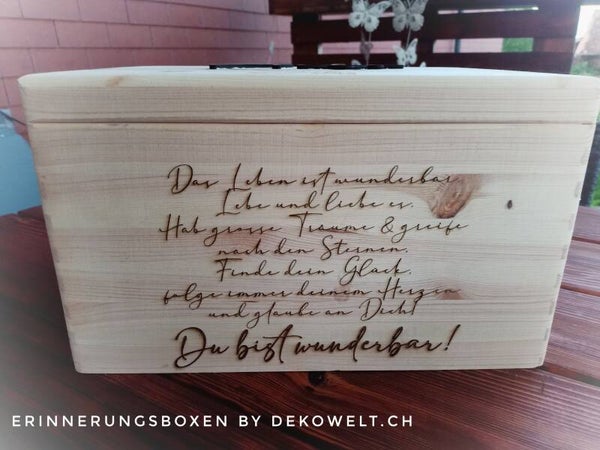 Das Leben ist wunderbar
Lebe und liebe es.
Hab grosse Träume & greife
nach den Sternen.
Finde dein Glück.
folge immer deinem Herzen
und glaube an Dich!
Du bist wunderbar!
ERINNERUNGSBOXEN BY DEKOWELT.CH